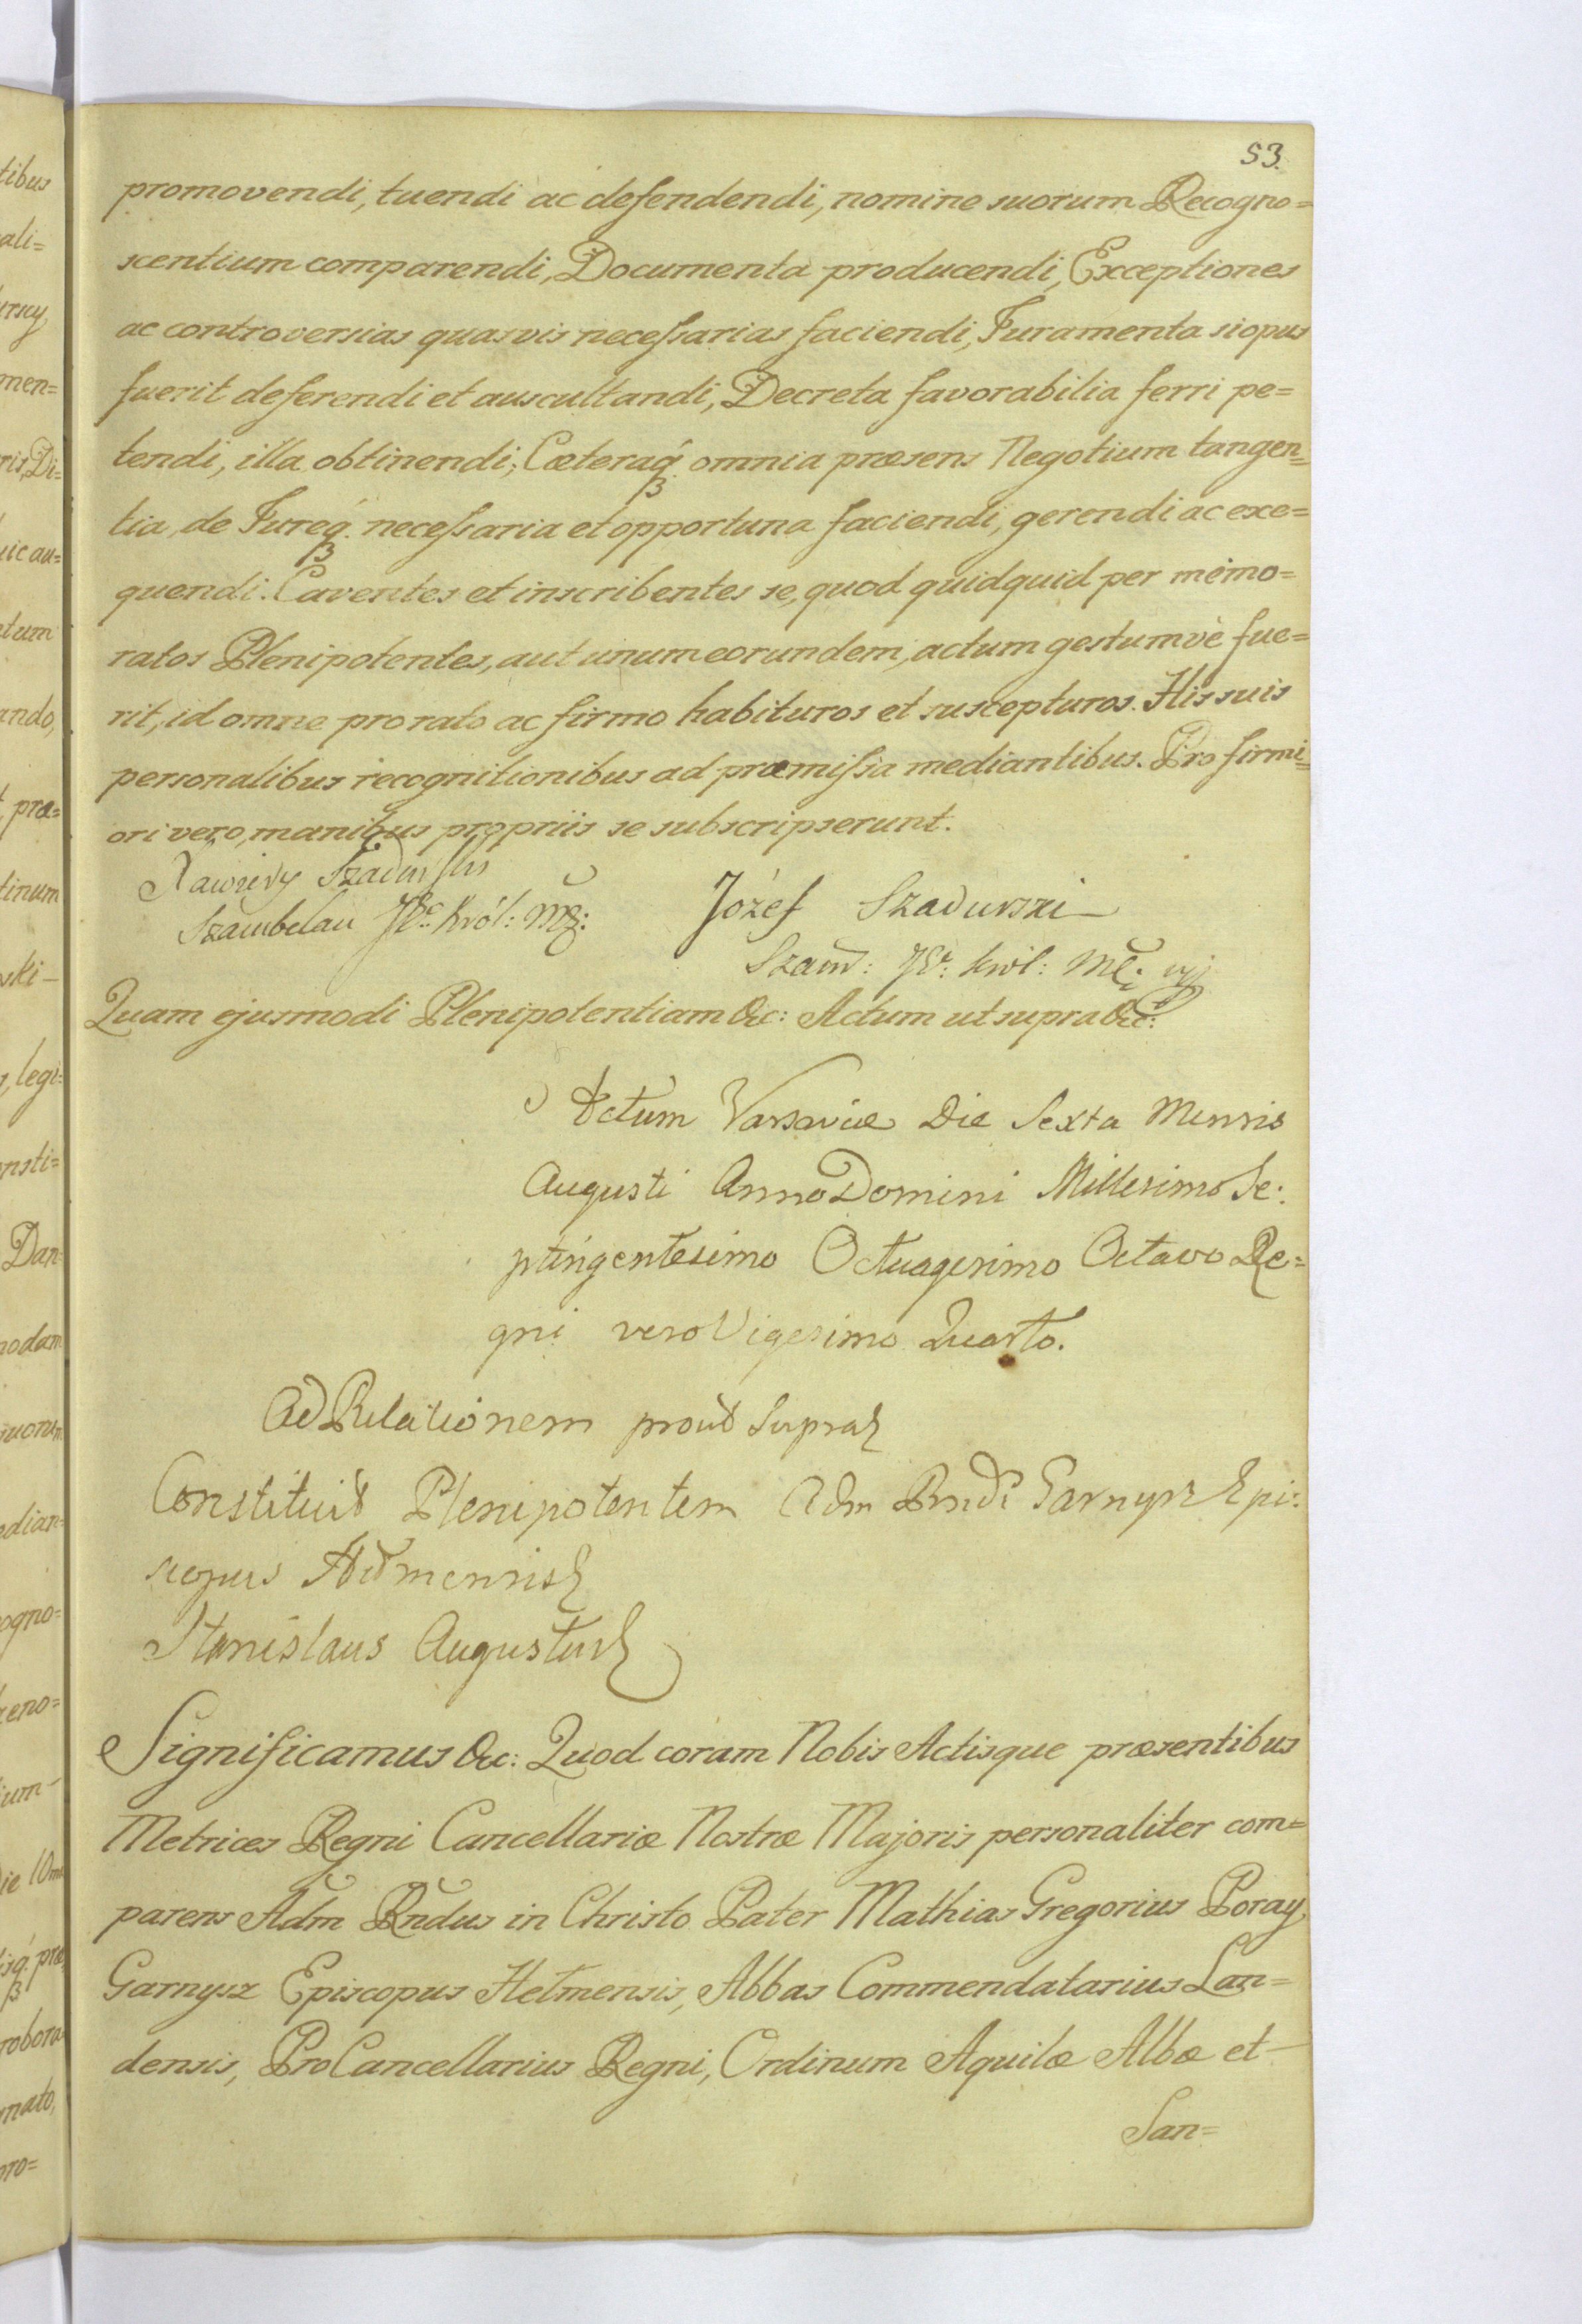 53.
promovendi, tuendi ac defendendi, nomine suorum Recogno=
scentium comparendi, Documenta producendi, Exceptiones
ac controversias quasvis necessarias faciendi, Juramenta si opus
fuerit deferendi et auscultandi, Decreta favorabilia ferri pe=
tendi, illa obtinendi; Cæteraq́ omnia præsens Negotium tangen=
tia, de Jureq́. necessaria et opportuna faciendi, gerendi ac exe=
quendi. Caventes et inscribentes se, quod quidquid per memo=
ratos Plenipotentes, aut unum eorundem, actum gestumvè fue=
rit, id omne pro rato ac firmo habituros et suscepturos. His suis
personalibus recognitionibus ad præmissa mediantibus. Pro firmi=
ori vero, manibus propriis se subscripserunt.
Xawiery Szadurski
Szambelan JKc. Król: Mć:
Józef Szadurski
Szam: JKr: Król: Mć.
Quam ejusmodi Plenipotentiam &c: Actum ut supra &c:
Actum Varsaviæ Die Sexta Mensis
Augusti Anno Domini Millesimo Se:
ptingentesimo Octuagesimo Octavo Re=
gni vero Vigesimo Quarto.
Ad Relationem prout Supra
Constituit Plenipotentem Adm Rndi Garnysz Epi:
scopus Hełmensis
Stanislaus Augustus
Significamus &c: Quod coram Nobis Actisque præsentibus
Metrices Regni Cancellariæ Nostræ Majoris personaliter com=
parens Adm̃ Rñdus in Christo Pater Mathias Gregorius Poray,
Garnysz Episcopus Hełmensis, Abbas Commendatarius Lan=
densis, ProCancellarius Regni, Ordinum Aquilæ Albæ et
San=